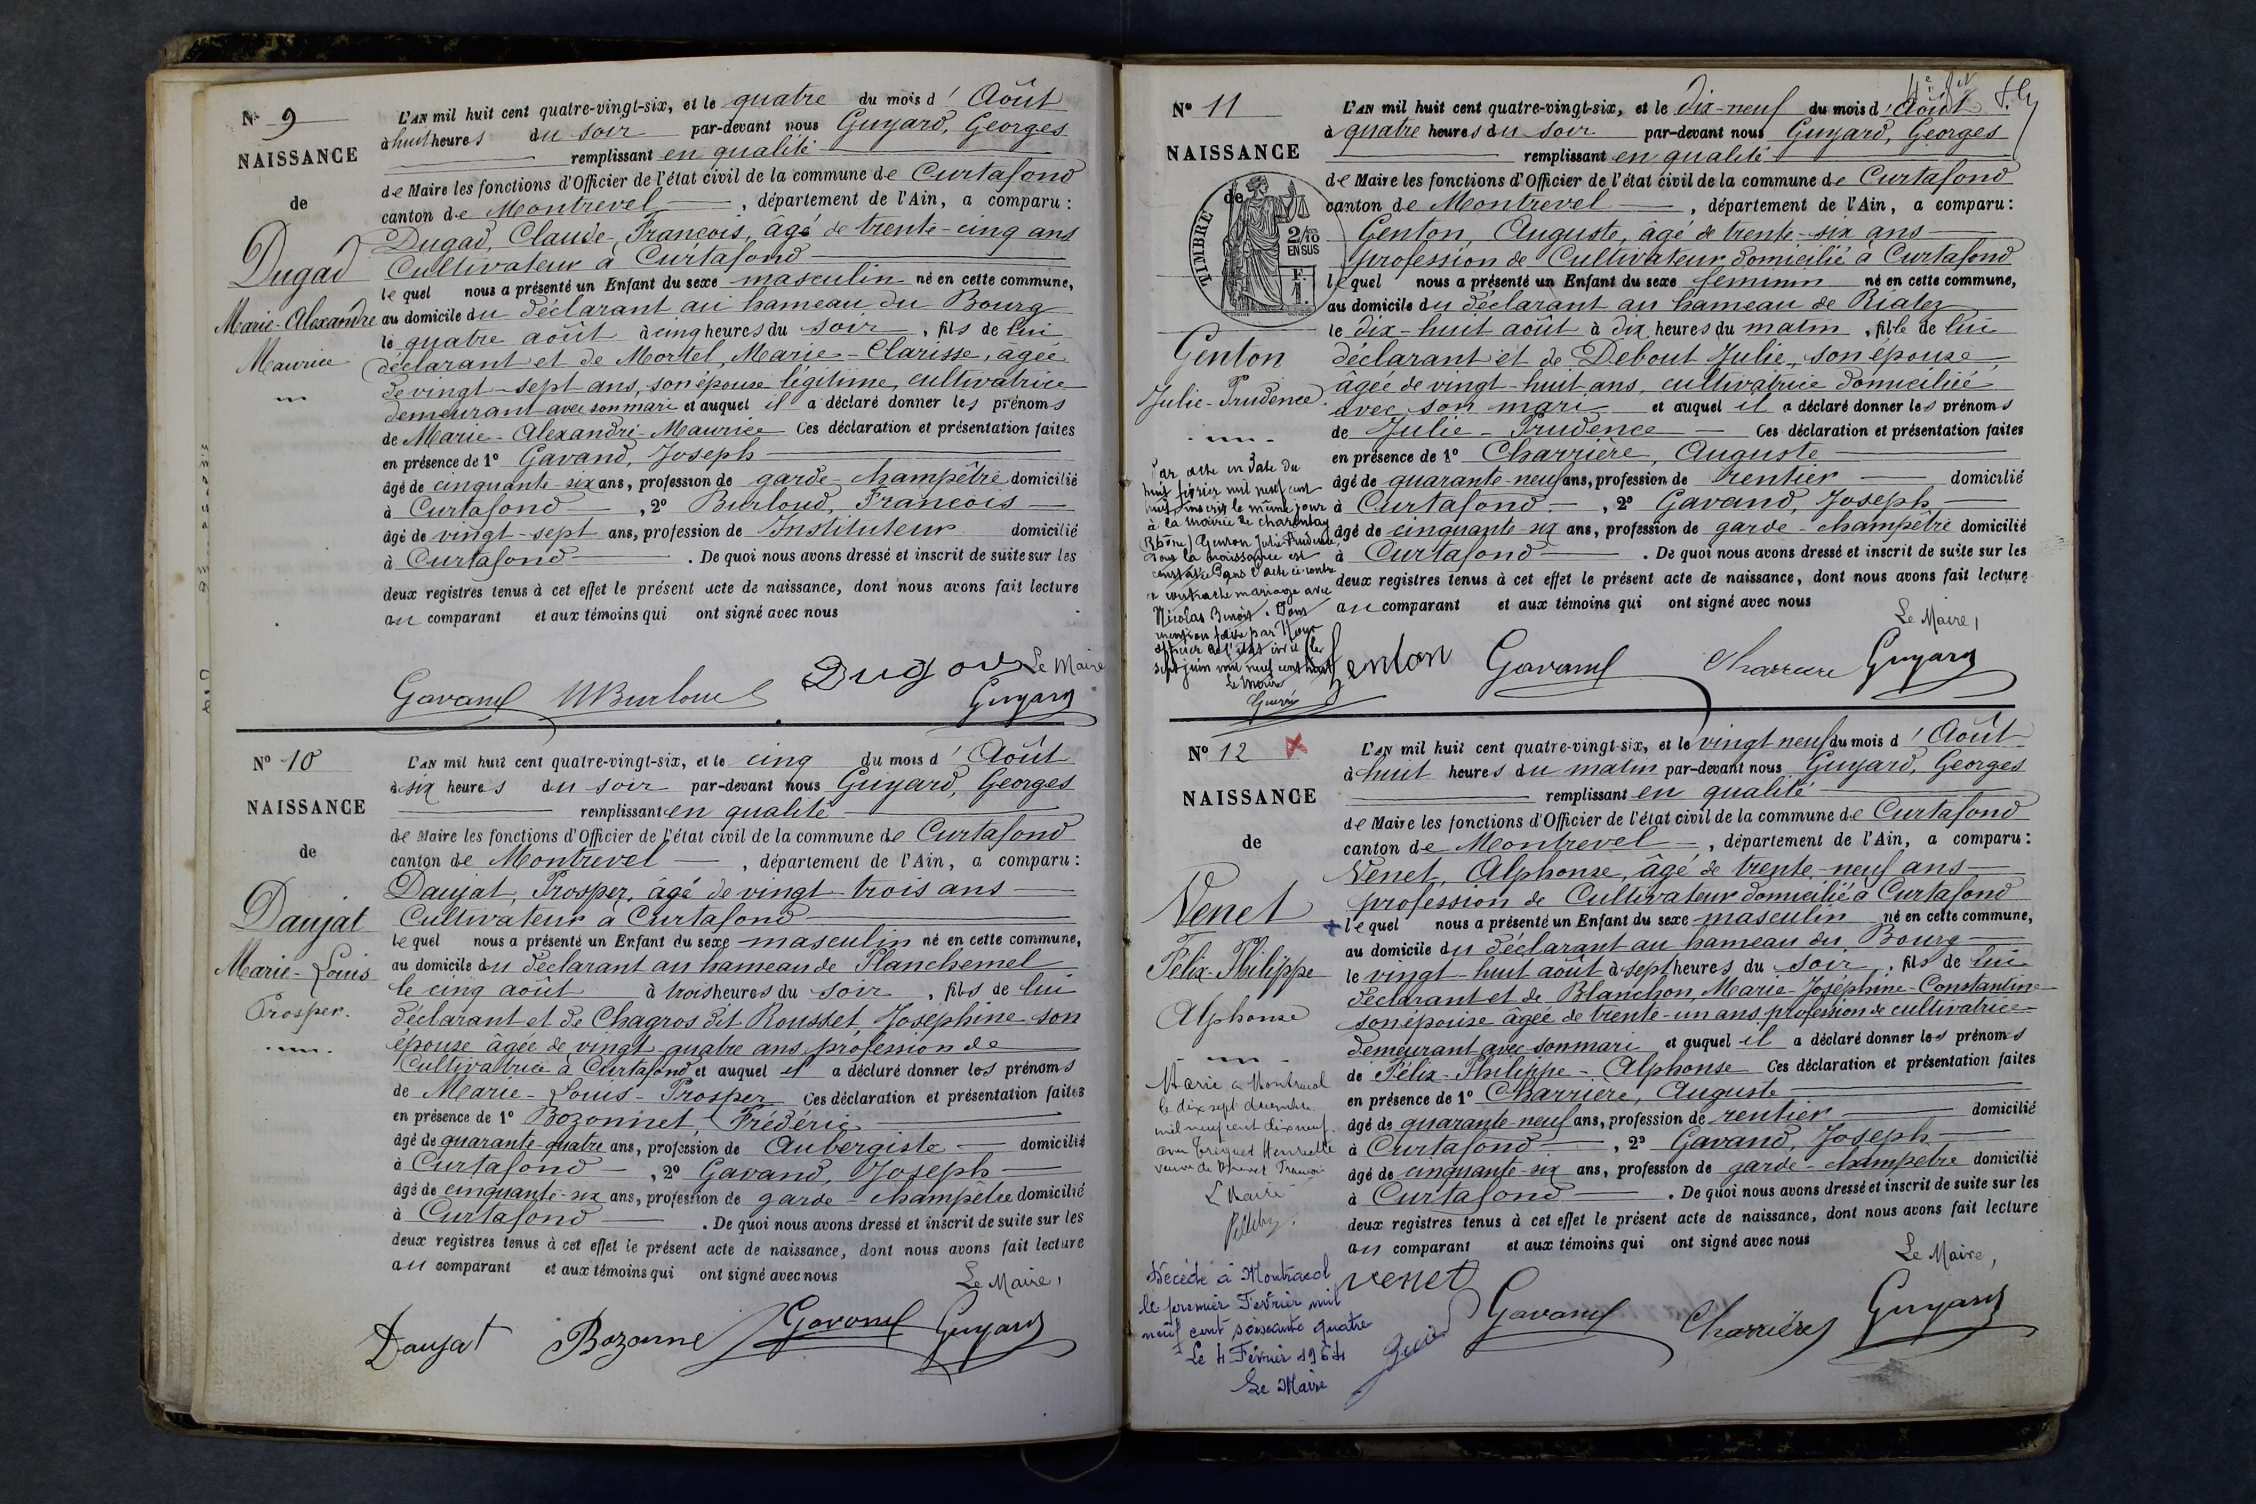 N° 9
NAISSANCE
de
Dugad
Marie-Alexandre
Maurice
L'AN mil huit cent quatre-vingt-six, et le quatre du mois d'Août
à huit heures du soir par-devant nous Guyard, Georges
remplissant en qualité
de Maire les fonctions d'Officier de l'état civil de la commune de Curtafond
canton de Montrevel, département de l'Ain, a comparu :
Dugad, Claude-François, âgé de trente-cinq ans
Cultivateur à Curtafond
lequel nous a présenté un Enfant du sexe masculin né en cette commune,
au domicile du déclarant au hameau du Bourg
le quatre août à cinq heures du soir, fils de lui
déclarant et de Mortel, Marie-Clarisse, âgée
de vingt-sept ans, son épouse légitime, cultivatrice
demeurant avec son mari et auquel il a déclaré donner les prénoms
de Marie-Alexandre-Maurice Ces déclaration et présentation faites
en présence de 1° Gavand, Joseph
âgé de cinquante-six ans, profession de garde-champêtre domicilié
à Curtafond, 2° Burloud, François
âgé de vingt-sept ans, profession de Instituteur domicilié
à Curtafond. De quoi nous avons dressé et inscrit de suite sur les
deux registres tenus à cet effet le présent acte de naissance, dont nous avons fait lecture
au comparant et aux témoins qui ont signé avec nous
Le Maire
Dugad
Gavand Burloud Guyard
N° 10
NAISSANCE
de
Daujat
Marie-Louis
Prosper.
L'AN mil huit cent quatre-vingt-six, et le cinq du mois d'Août
à six heures du soir par-devant nous Guyard, Georges
remplissant en qualité
de Maire les fonctions d'Officier de l'état civil de la commune de Curtafond
canton de Montrevel, département de l'Ain, a comparu :
Daujat, Prosper, âgé de vingt-trois ans
Cultivateur à Curtafond
lequel nous a présenté un Enfant du sexe masculin né en cette commune,
au domicile du déclarant au hameau de Planchemel
le cinq août à trois heures du soir, fils de lui
déclarant et de Chagros dit Rousset, Joséphine son
épouse âgée de vingt-quatre ans profession de
Cultivatrice à Curtafond et auquel il a déclaré donner les prénoms
de Marie-Louis-Prosper Ces déclaration et présentation faites
en présence de 1° Bozonnet, Frédéric
âgé de quarante-quatre ans, profession de Aubergiste domicilié
à Curtafond, 2° Gavand, Joseph
âgé de cinquante-six ans, profession de garde-champêtre domicilié
à Curtafond. De quoi nous avons dressé et inscrit de suite sur les
deux registres tenus à cet effet le présent acte de naissance, dont nous avons fait lecture
au comparant et aux témoins qui ont signé avec nous
Le Maire,
Daujat Bozonne Gavand Guyard
N° 11
NAISSANCE
de
TIMBRE
2/10
EN SUS
Genton
Julie-Prudence
L'AN mil huit cent quatre-vingt-six, et le dix-neuf du mois d'Août
à quatre heures du soir par-devant nous Guyard, Georges
remplissant en qualité
de Maire les fonctions d'Officier de l'état civil de la commune de Curtafond
canton de Montrevel, département de l'Ain, a comparu :
Genton, Auguste, âgé de trente-six ans
profession de Cultivateur domicilié à Curtafond
lequel nous a présenté un Enfant du sexe féminin né en cette commune,
au domicile du déclarant au hameau de Riatez
le dix-huit août à dix heures du matin, fille de lui
déclarant et de Debout Julie, son épouse,
âgée de vingt-huit ans, cultivatrice domiciliée
avec son mari et auquel il a déclaré donner les prénoms
de Julie-Prudence Ces déclaration et présentation faites
en présence de 1° Charrière, Auguste
âgé de quarante-neuf ans, profession de rentier domicilié
à Curtafond, 2° Gavand, Joseph
âgé de cinquante-six ans, profession de garde-champêtre domicilié
à Curtafond. De quoi nous avons dressé et inscrit de suite sur les
deux registres tenus à cet effet le présent acte de naissance, dont nous avons fait lecture
au comparant et aux témoins qui ont signé avec nous
Le Maire,
Genton Gavand Charriere Guyard
Par acte en date du
huit février mil neuf cent
huit inscrit le même jour
à la mairie de Charentay
(Rhône) Genton Julie Prudence
dont la naissance est
constatée dans l'acte ci-contre
a contracté mariage avec
Nicolas Benoit. Dont
mention faite par Nous
officier de l'état civil le
sept juin mil neuf cent huit
Le Maire
N° 12
NAISSANCE
de
Venet
Félix-Philippe
Alphonse
L'AN mil huit cent quatre-vingt-six, et le vingt neuf du mois d'Août
à huit heures du matin par-devant nous Guyard, Georges
remplissant en qualité
de Maire les fonctions d'Officier de l'état civil de la commune de Curtafond
canton de Montrevel, département de l'Ain, a comparu :
Venet, Alphonse, âgé de trente-neuf ans
profession de Cultivateur domicilié à Curtafond
lequel nous a présenté un Enfant du sexe masculin né en cette commune,
au domicile du déclarant au hameau du Bourg
le vingt-huit août à sept heures du soir, fils de lui
déclarant et de Blanchon, Marie-Joséphine-Constantine
son épouse âgée de trente-un ans profession de cultivatrice
demeurant avec son mari et auquel il a déclaré donner les prénoms
de Félix-Philippe-Alphonse Ces déclaration et présentation faites
en présence de 1° Charrière, Auguste
âgé de quarante-neuf ans, profession de rentier domicilié
à Curtafond, 2° Gavand, Joseph
âgé de cinquante-six ans, profession de garde-champêtre domicilié
à Curtafond. De quoi nous avons dressé et inscrit de suite sur les
deux registres tenus à cet effet le présent acte de naissance, dont nous avons fait lecture
au comparant et aux témoins qui ont signé avec nous
Le Maire,
Venet Gavand Charrière Guyard
Marié à Montracol
le dix sept décembre
mil neuf cent dix neuf
avec Henriette
veuve de
Le Maire
Décédé à Montracol
le premier Février mil
neuf cent soixante quatre
Le 4 Février 1964
Le Maire